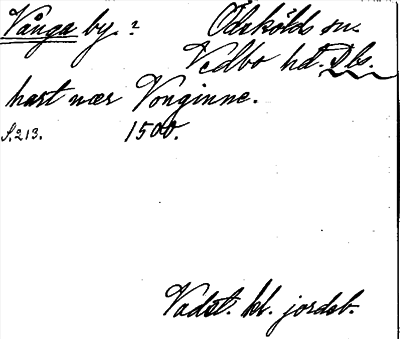 Vånga by. ? Ödeskölds sn.
Vedbo hd. Dls.
hart nær Vonginne.
S. 213. 1500.
Vadst. kl. jordeb.